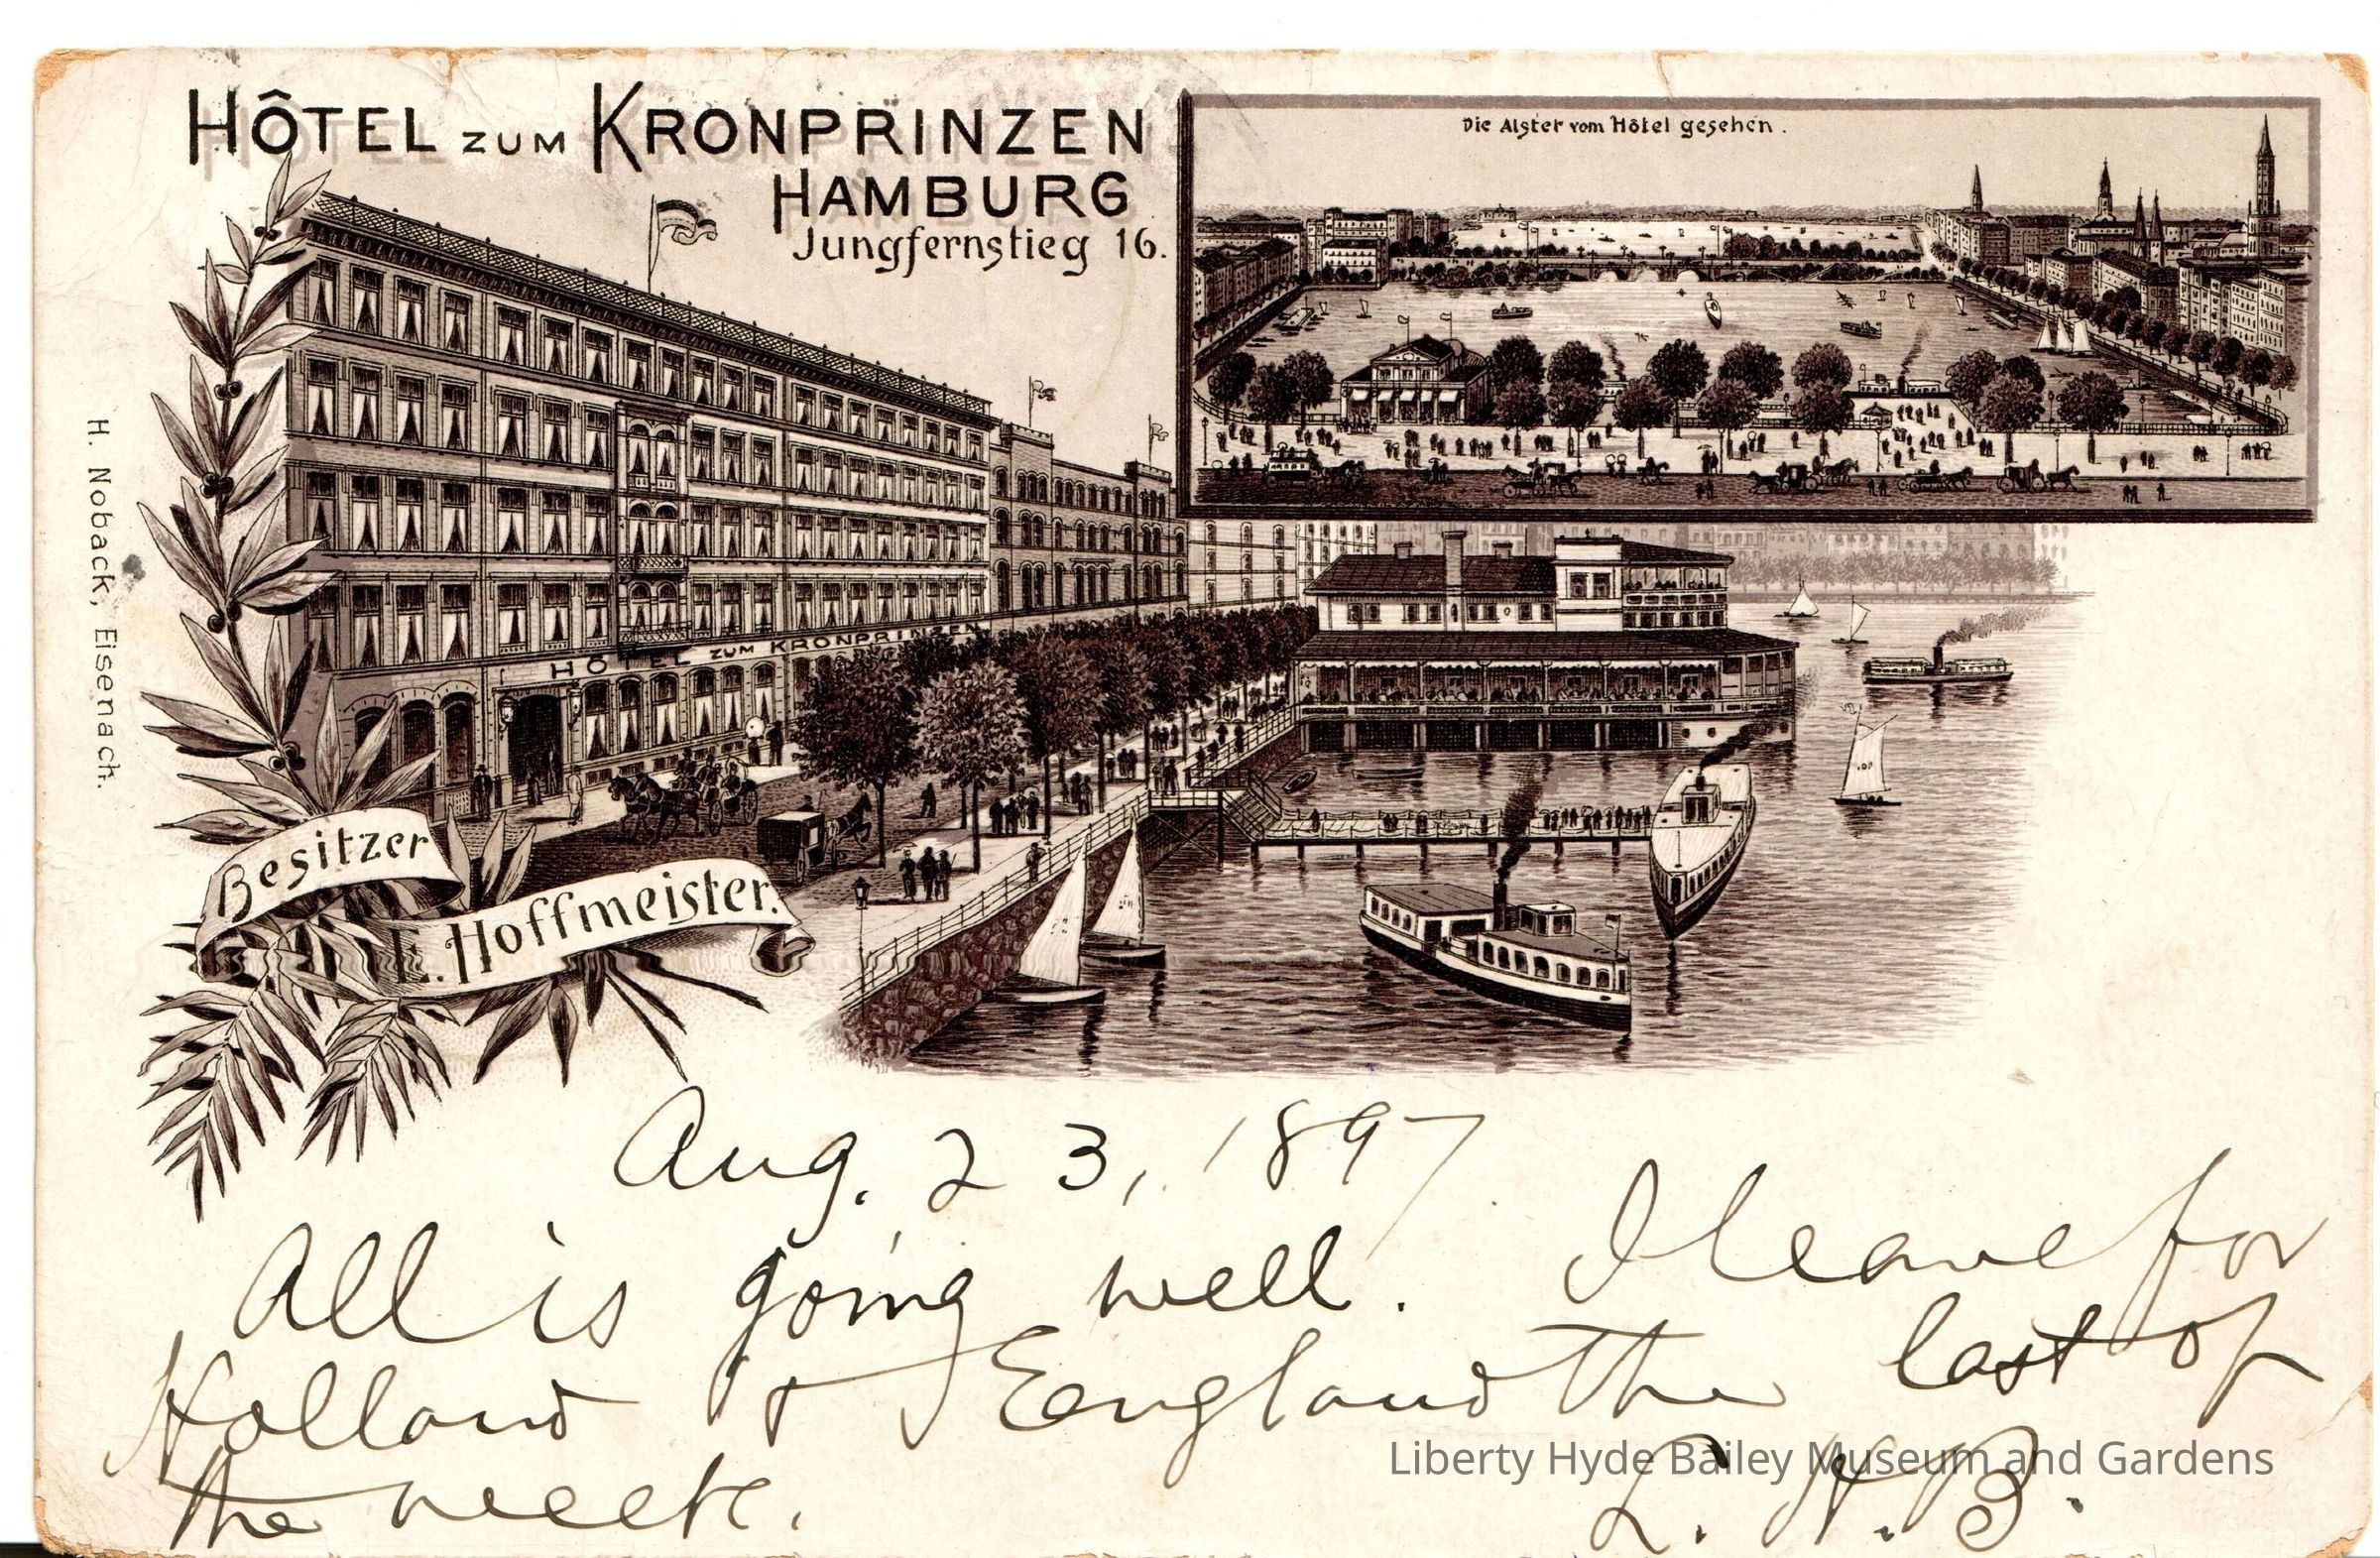 HÔTEL ZUM KRONPRINZEN
HAMBURG
Jungfernstieg 16.
Die Alster vom Hôtel gesehen.
H. Noback, Eisenach.
HÔTEL ZUM KRONPRINZEN
Besitzer
E. Hoffmeister.
Aug. 23, 1897
All is going well. I leave for
Holland & England the last of
the week.
L. H. B.
Liberty Hyde Bailey Museum and Gardens